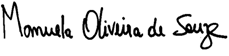 Manuela Oliveira de Souza